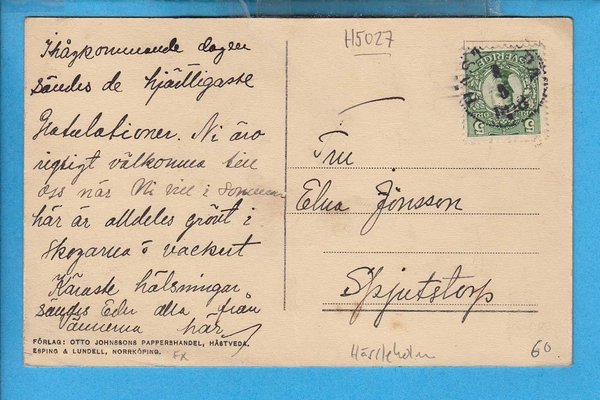 H5027
Ihågkommande dagen
sändes de hjärtligaste
Gratulationer. Ni äro
rigtigt välkomna till
oss när Ni vill i sommar
här är alldeles grönt i
skogarna o vackert
Käraste hälsningar
sändes Eder alla från
ännerna här
FÖRLAG: OTTO JOHNSSONS PAPPERSHANDEL, HÄSTVEDA.
ESPING & LUNDELL, NORRKÖPING.
EX
SVERIGE
5
5
Fru
Elna Jönsson
Spjutstorp
Hässleholm
60